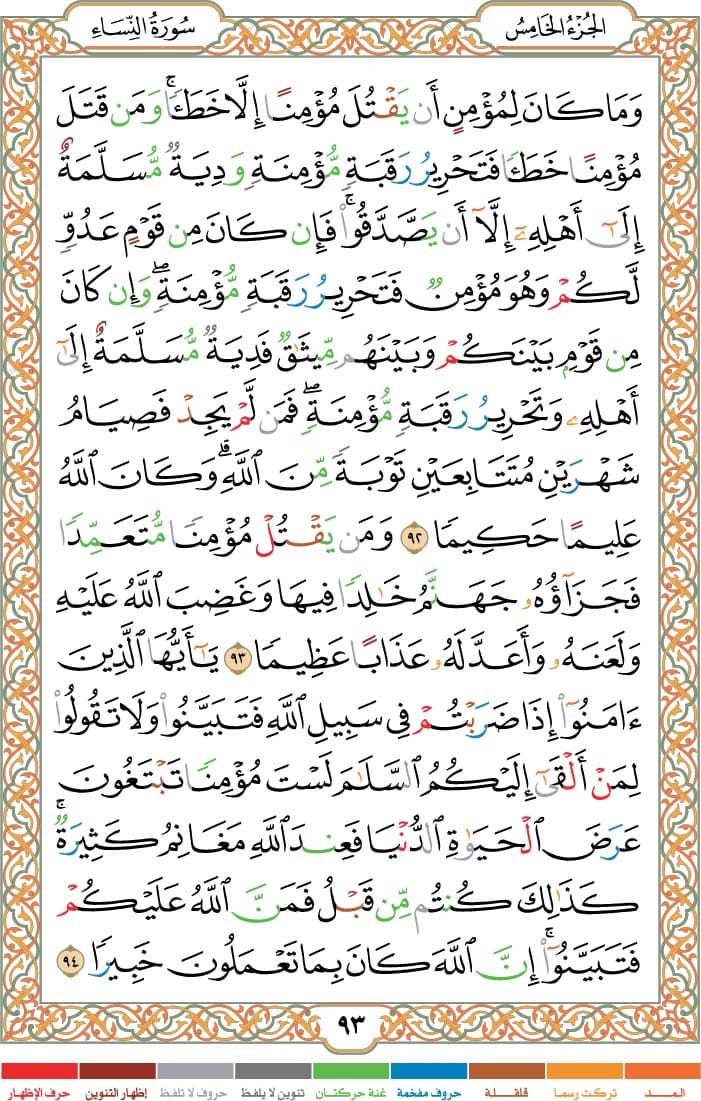 سُورَةُ النِّسَاءِ
الجُزْءُ الخَامِسُ
وَمَا كَانَ لِمُؤْمِنٍ أَن يَقْتُلَ مُؤْمِنًا إِلَّا خَطَـًٔا ۚ وَمَن قَتَلَ
مُؤْمِنًا خَطَـًٔا فَتَحْرِيرُ رَقَبَةٍ مُّؤْمِنَةٍ وَدِيَةٌ مُّسَلَّمَةٌ
إِلَىٰٓ أَهْلِهِۦٓ إِلَّآ أَن يَصَّدَّقُوا۟ ۚ فَإِن كَانَ مِن قَوْمٍ عَدُوٍّ
لَّكُمْ وَهُوَ مُؤْمِنٌ فَتَحْرِيرُ رَقَبَةٍ مُّؤْمِنَةٍ ۖ وَإِن كَانَ
مِن قَوْمٍۭ بَيْنَكُمْ وَبَيْنَهُم مِّيثَٰقٌ فَدِيَةٌ مُّسَلَّمَةٌ إِلَىٰٓ
أَهْلِهِۦ وَتَحْرِيرُ رَقَبَةٍ مُّؤْمِنَةٍ ۖ فَمَن لَّمْ يَجِدْ فَصِيَامُ
شَهْرَيْنِ مُتَتَابِعَيْنِ تَوْبَةً مِّنَ ٱللَّهِ ۗ وَكَانَ ٱللَّهُ
عَلِيمًا حَكِيمًا ٩٢ وَمَن يَقْتُلْ مُؤْمِنًا مُّتَعَمِّدًا
فَجَزَآؤُهُۥ جَهَنَّمُ خَٰلِدًا فِيهَا وَغَضِبَ ٱللَّهُ عَلَيْهِ
وَلَعَنَهُۥ وَأَعَدَّ لَهُۥ عَذَابًا عَظِيمًا ٩٣ يَٰٓأَيُّهَا ٱلَّذِينَ
ءَامَنُوٓا۟ إِذَا ضَرَبْتُمْ فِى سَبِيلِ ٱللَّهِ فَتَبَيَّنُوا۟ وَلَا تَقُولُوا۟
لِمَنْ أَلْقَىٰٓ إِلَيْكُمُ ٱلسَّلَٰمَ لَسْتَ مُؤْمِنًا تَبْتَغُونَ
عَرَضَ ٱلْحَيَوٰةِ ٱلدُّنْيَا فَعِندَ ٱللَّهِ مَغَانِمُ كَثِيرَةٌ ۚ
كَذَٰلِكَ كُنتُم مِّن قَبْلُ فَمَنَّ ٱللَّهُ عَلَيْكُمْ
فَتَبَيَّنُوٓا۟ ۚ إِنَّ ٱللَّهَ كَانَ بِمَا تَعْمَلُونَ خَبِيرًا ٩٤
٩٣
المـــد تركت رسما قلقلة حروف مفخمة غنة حركتان تنوين لا يلفظ حروف لا تلفظ إظهار التنوين حرف الإظهار